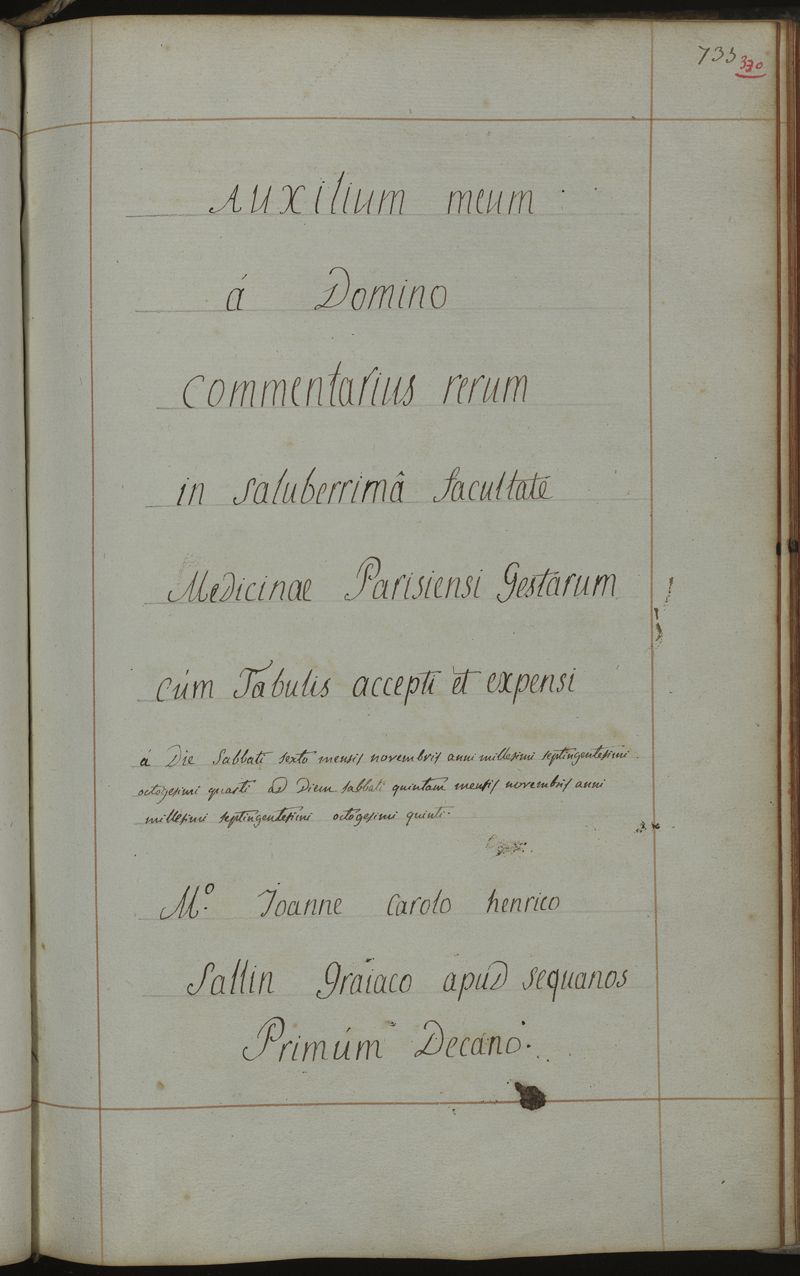 733
370
Auxilium meum
á Domino
Commentarius rerum
in saluberrimâ facultate
Medicinae Parisiensi Gestarum
cúm Tabulis accepti et expensi
á Die Sabbati sexto mensis novembris anni millesimi septingentesimi
octogesimi quarti ad Diem sabbati quintam mensis novembris anni
millesimi septingentesimi octogesimi quinti.
M.º Joanne Carolo henrico
Sallin graïaco apud sequanos
Primúm Decano.